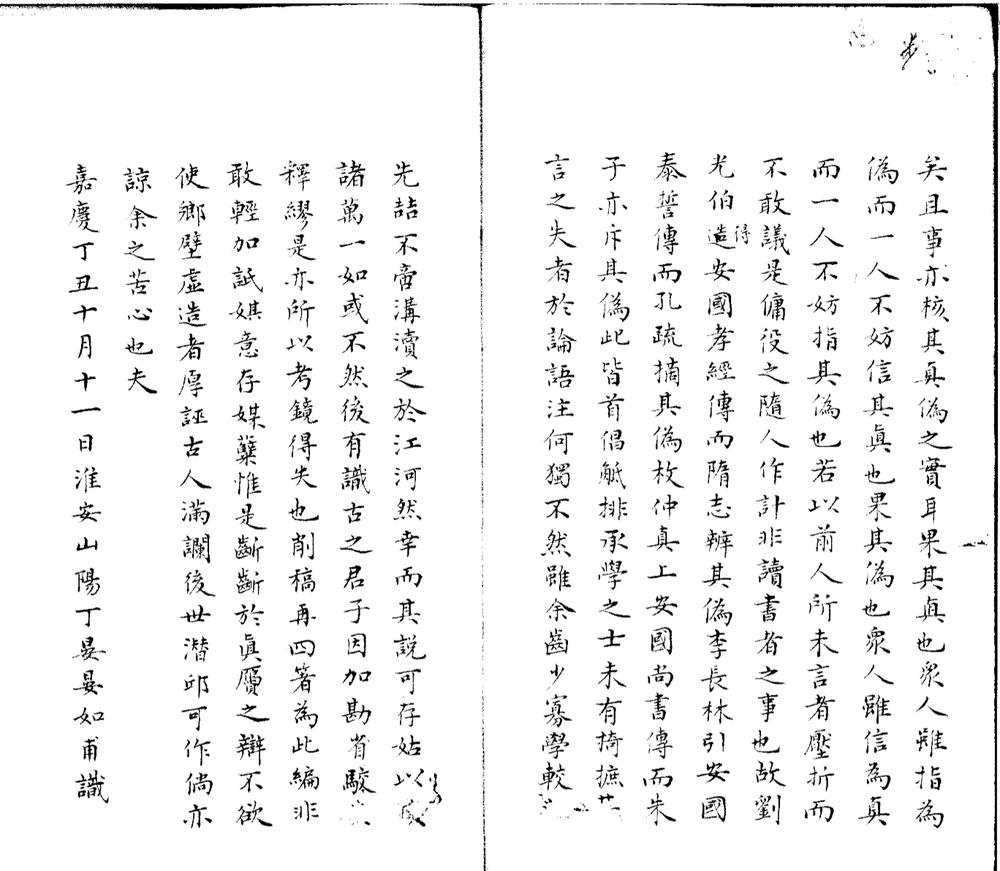 矣且事亦核其真偽之實耳果其真也衆人雖指為
偽而一人不妨信其真也果其偽也衆人雖信為真
而一人不妨指其偽也若以前人所未言者壓折而
不敢議是傭役之隨人作計非讀書者之事也故劉
光伯造得安國孝經傳而隋志辨其偽李長林引安國
泰誓傳而孔疏摘其偽枚仲真上安國尚書傳而朱
子亦斥其偽此皆首倡觝排承學之士未有掎摭
言之失者於論語注何獨不然雖余齒少寡學較
先喆不啻溝瀆之於江河然幸而其說可存姑以
諸萬一如或不然後有識古之君子因加勘省駮
釋繆是亦所以考鏡得失也削稿再四箸為此編非
敢輕加詆娸意存媒糱惟是齗齗於真贗之辯不欲
使鄉壁虛造者厚誣古人滿讕後世潛邱可作倘亦
諒余之苦心也夫
嘉慶丁丑十月十一日淮安山陽丁晏晏如甫識